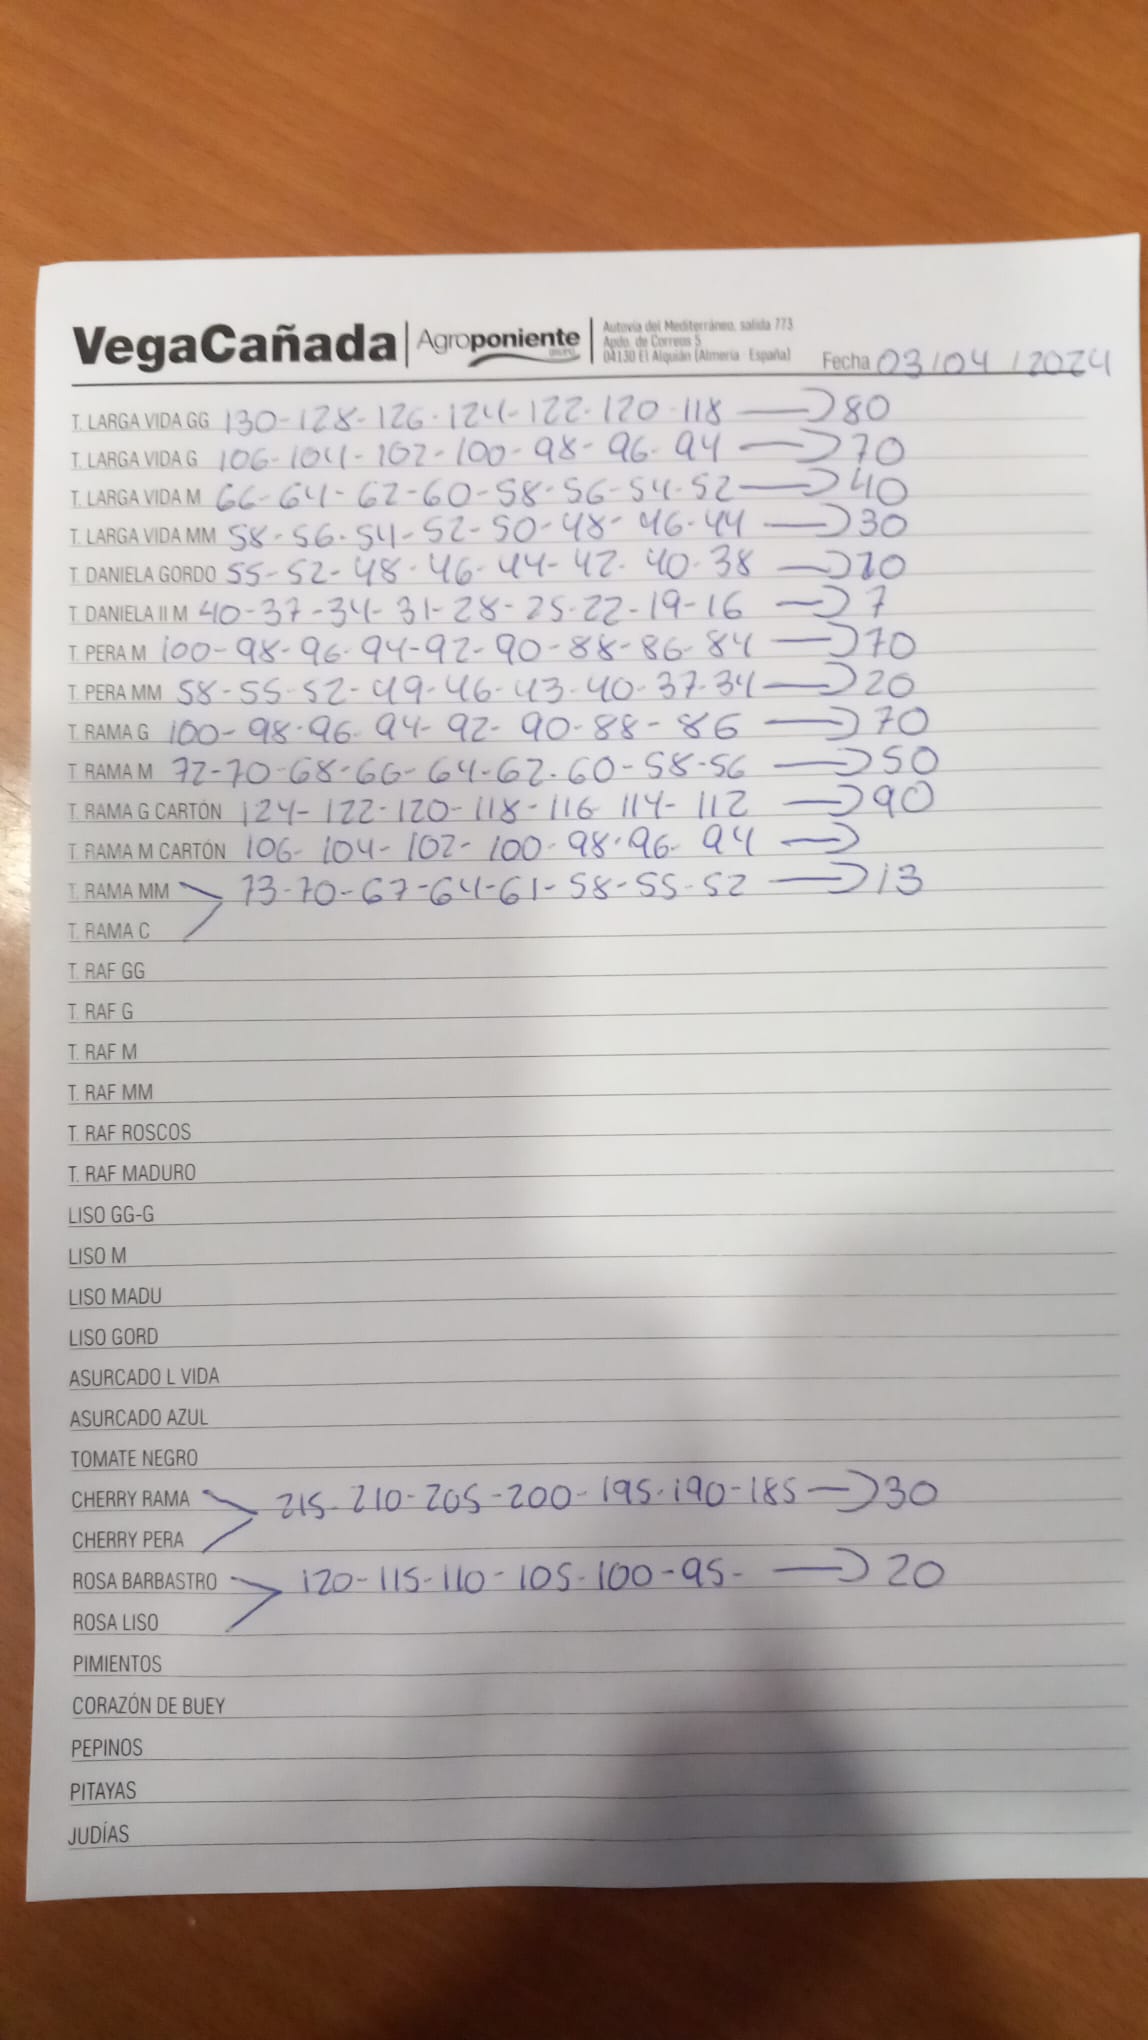 VegaCañada | Agroponiente
Autovía del Mediterráneo, salida 773
Apdo. de Correos 5
04130 El Alquián (Almería - España)
Fecha 03/04/2024
T. LARGA VIDA GG 130-128-126-124-122-120-118 → 80
T. LARGA VIDA G 106-104-102-100-98-96-94 → 70
T. LARGA VIDA M 66-64-62-60-58-56-54-52 → 40
T. LARGA VIDA MM 58-56-54-52-50-48-46-44 → 30
T. DANIELA GORDO 55-52-48-46-44-42-40-38 →
T. DANIELA II M 40-37-34-31-28-25-22-19-16 → 7
T. PERA M 100-98-96-94-92-90-88-86-84 → 70
T. PERA MM 58-55-52-49-46-43-40-37-34 → 20
T. RAMA G 100-98-96-94-92-90-88-86 → 70
T. RAMA M 72-70-68-66-64-62-60-58-56 → 50
T. RAMA G CARTÓN 124-122-120-118-116-114-112 → 90
T. RAMA M CARTÓN 106-104-102-100-98-96-94 →
T. RAMA MM 73-70-67-64-61-58-55-52 → 13
T. RAMA C
T. RAF GG
T. RAF G
T. RAF M
T. RAF MM
T. RAF ROSCOS
T. RAF MADURO
LISO GG-G
LISO M
LISO MADU
LISO GORD
ASURCADO L VIDA
ASURCADO AZUL
TOMATE NEGRO
CHERRY RAMA 215-210-205-200-195-190-185 → 30
CHERRY PERA
ROSA BARBASTRO 120-115-110-105-100-95- → 20
ROSA LISO
PIMIENTOS
CORAZÓN DE BUEY
PEPINOS
PITAYAS
JUDÍAS